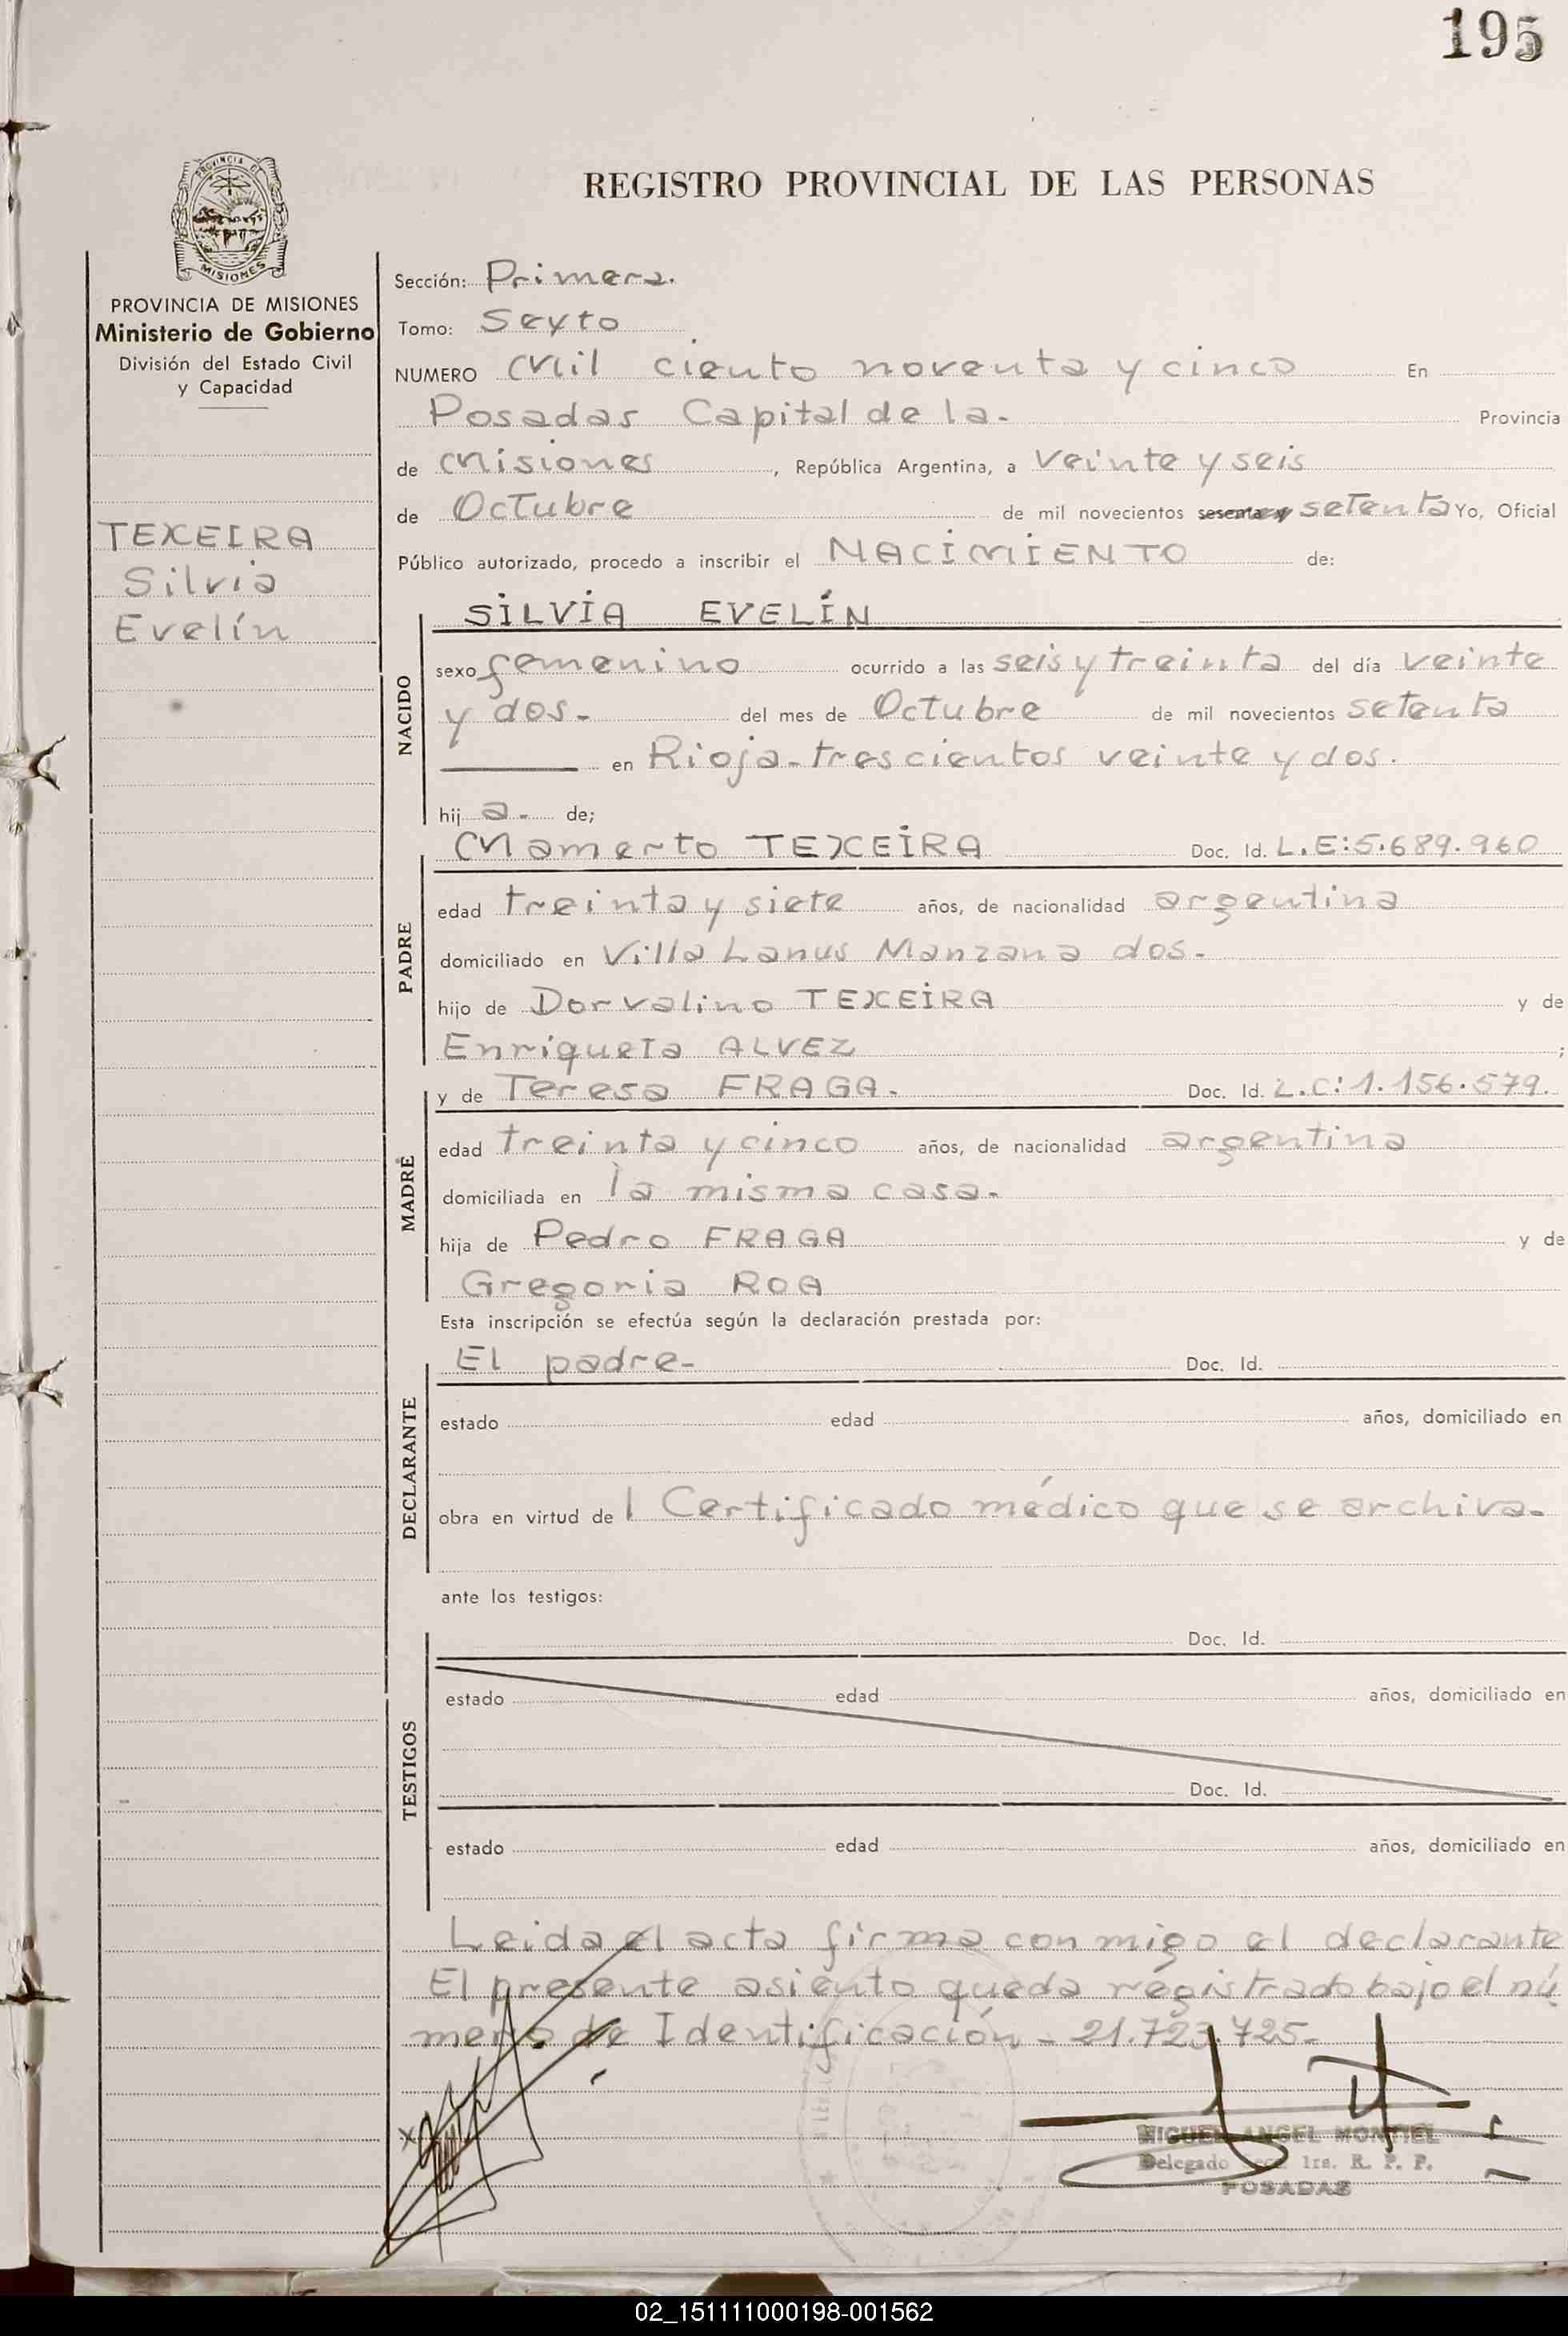 195
REGISTRO PROVINCIAL DE LAS PERSONAS
PROVINCIA DE
MISIONES
PROVINCIA DE MISIONES
Ministerio de Gobierno
División del Estado Civil
y Capacidad
TEXEIRA
Silvia
Evelín
Sección: Primera.
Tomo: Sexto
NUMERO Mil ciento noventa y cinco En
Posadas Capital de la - Provincia
de Misiones, República Argentina, a Veinte y seis
de Octubre de mil novecientos sesenta y setenta Yo, Oficial
Público autorizado, procedo a inscribir el NACIMIENTO de:
NACIDO
SILVIA EVELÍN
sexo femenino ocurrido a las seis y treinta del día veinte
y dos - del mes de Octubre de mil novecientos setenta
en Rioja - trescientos veinte y dos.
hij a - de;
PADRE
Mamerto TEXEIRA Doc. Id. L.E:5.689.960
edad treinta y siete años, de nacionalidad argentina
domiciliado en Villa Lanus Manzana dos -
hijo de Dorvalino TEXEIRA y de
Enriqueta ALVEZ ;
MADRE
y de Teresa FRAGA - Doc. Id. L.C:1.156.579.
edad treinta y cinco años, de nacionalidad argentina
domiciliada en la misma casa -
hija de Pedro FRAGA y de
Gregoria ROA
Esta inscripción se efectúa según la declaración prestada por:
DECLARANTE
El padre - Doc. Id.
estado edad años, domiciliado en
obra en virtud de l Certificado médico que se archiva -
ante los testigos:
TESTIGOS
Doc. Id.
estado edad años, domiciliado en
Doc. Id.
estado edad años, domiciliado en
Leida el acta firma conmigo el declarante
El presente asiento queda registrado bajo el nú
mero de Identificación - 21.723.725 -
MIGUEL ANGEL MONTIEL
Delegado Secc 1ra. R. P. P.
POSADAS
02_151111000198-001562